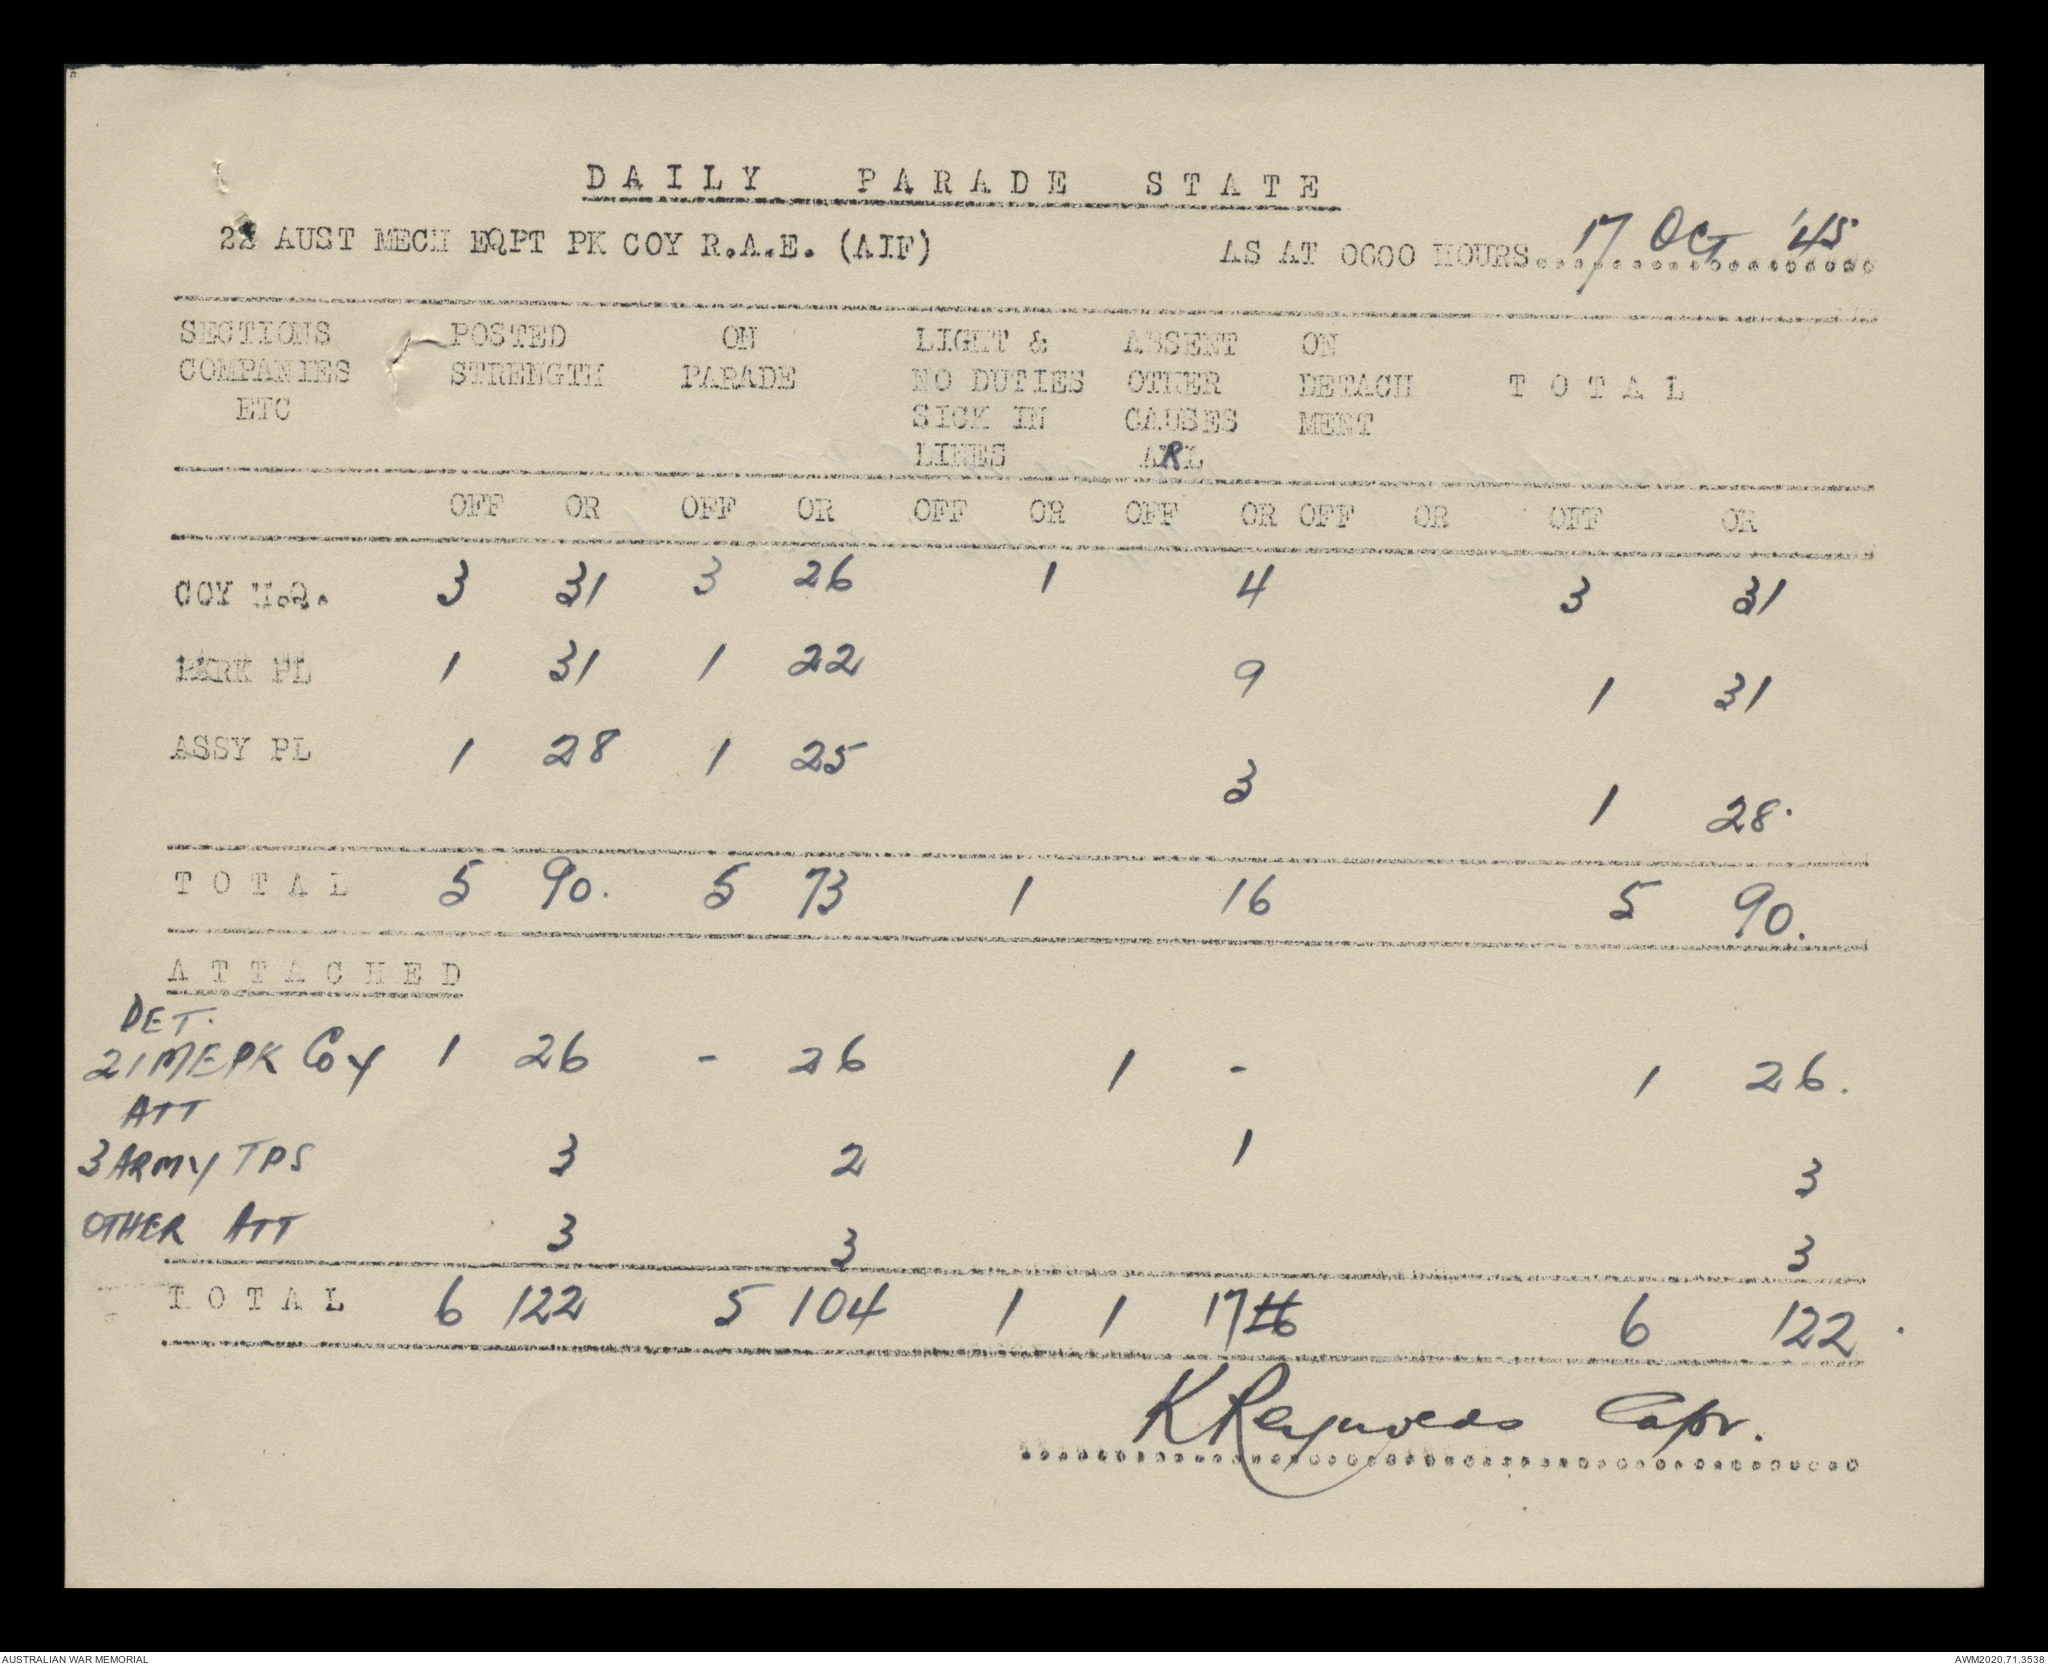 DAILY PARADE STATE
22 AUST MECH EQPT PK COY R.A.E. (AIF) AS AT 0600 HOURS 17 OCT '45
SECTIONS POSTED ON LIGHT & ABSENT ON
COMPANIES STRENGTH PARADE NO DUTIES OTHER DETACH TOTAL
ETC SICK IN CAUSES MENT
LINES ARL
OFF OR OFF OR OFF OR OFF OR OFF OR OFF OR
COY H.Q. 3 31 3 26 1 4 3 31
PARK PL 1 31 1 22 9 1 31
ASSY PL 1 28 1 25 3 1 28.
TOTAL 5 90. 5 73 1 16 5 90.
ATTACHED
DET.
21 ME PK Coy 1 26 - 26 1 - 1 26.
ATT
3 ARMY TPS 3 2 1 3
OTHER ATT 3 3 3
TOTAL 6 122 5 104 1 1 17 16 6 122.
K Reynolds Capt.
AUSTRALIAN WAR MEMORIAL AWM2020.71.3538